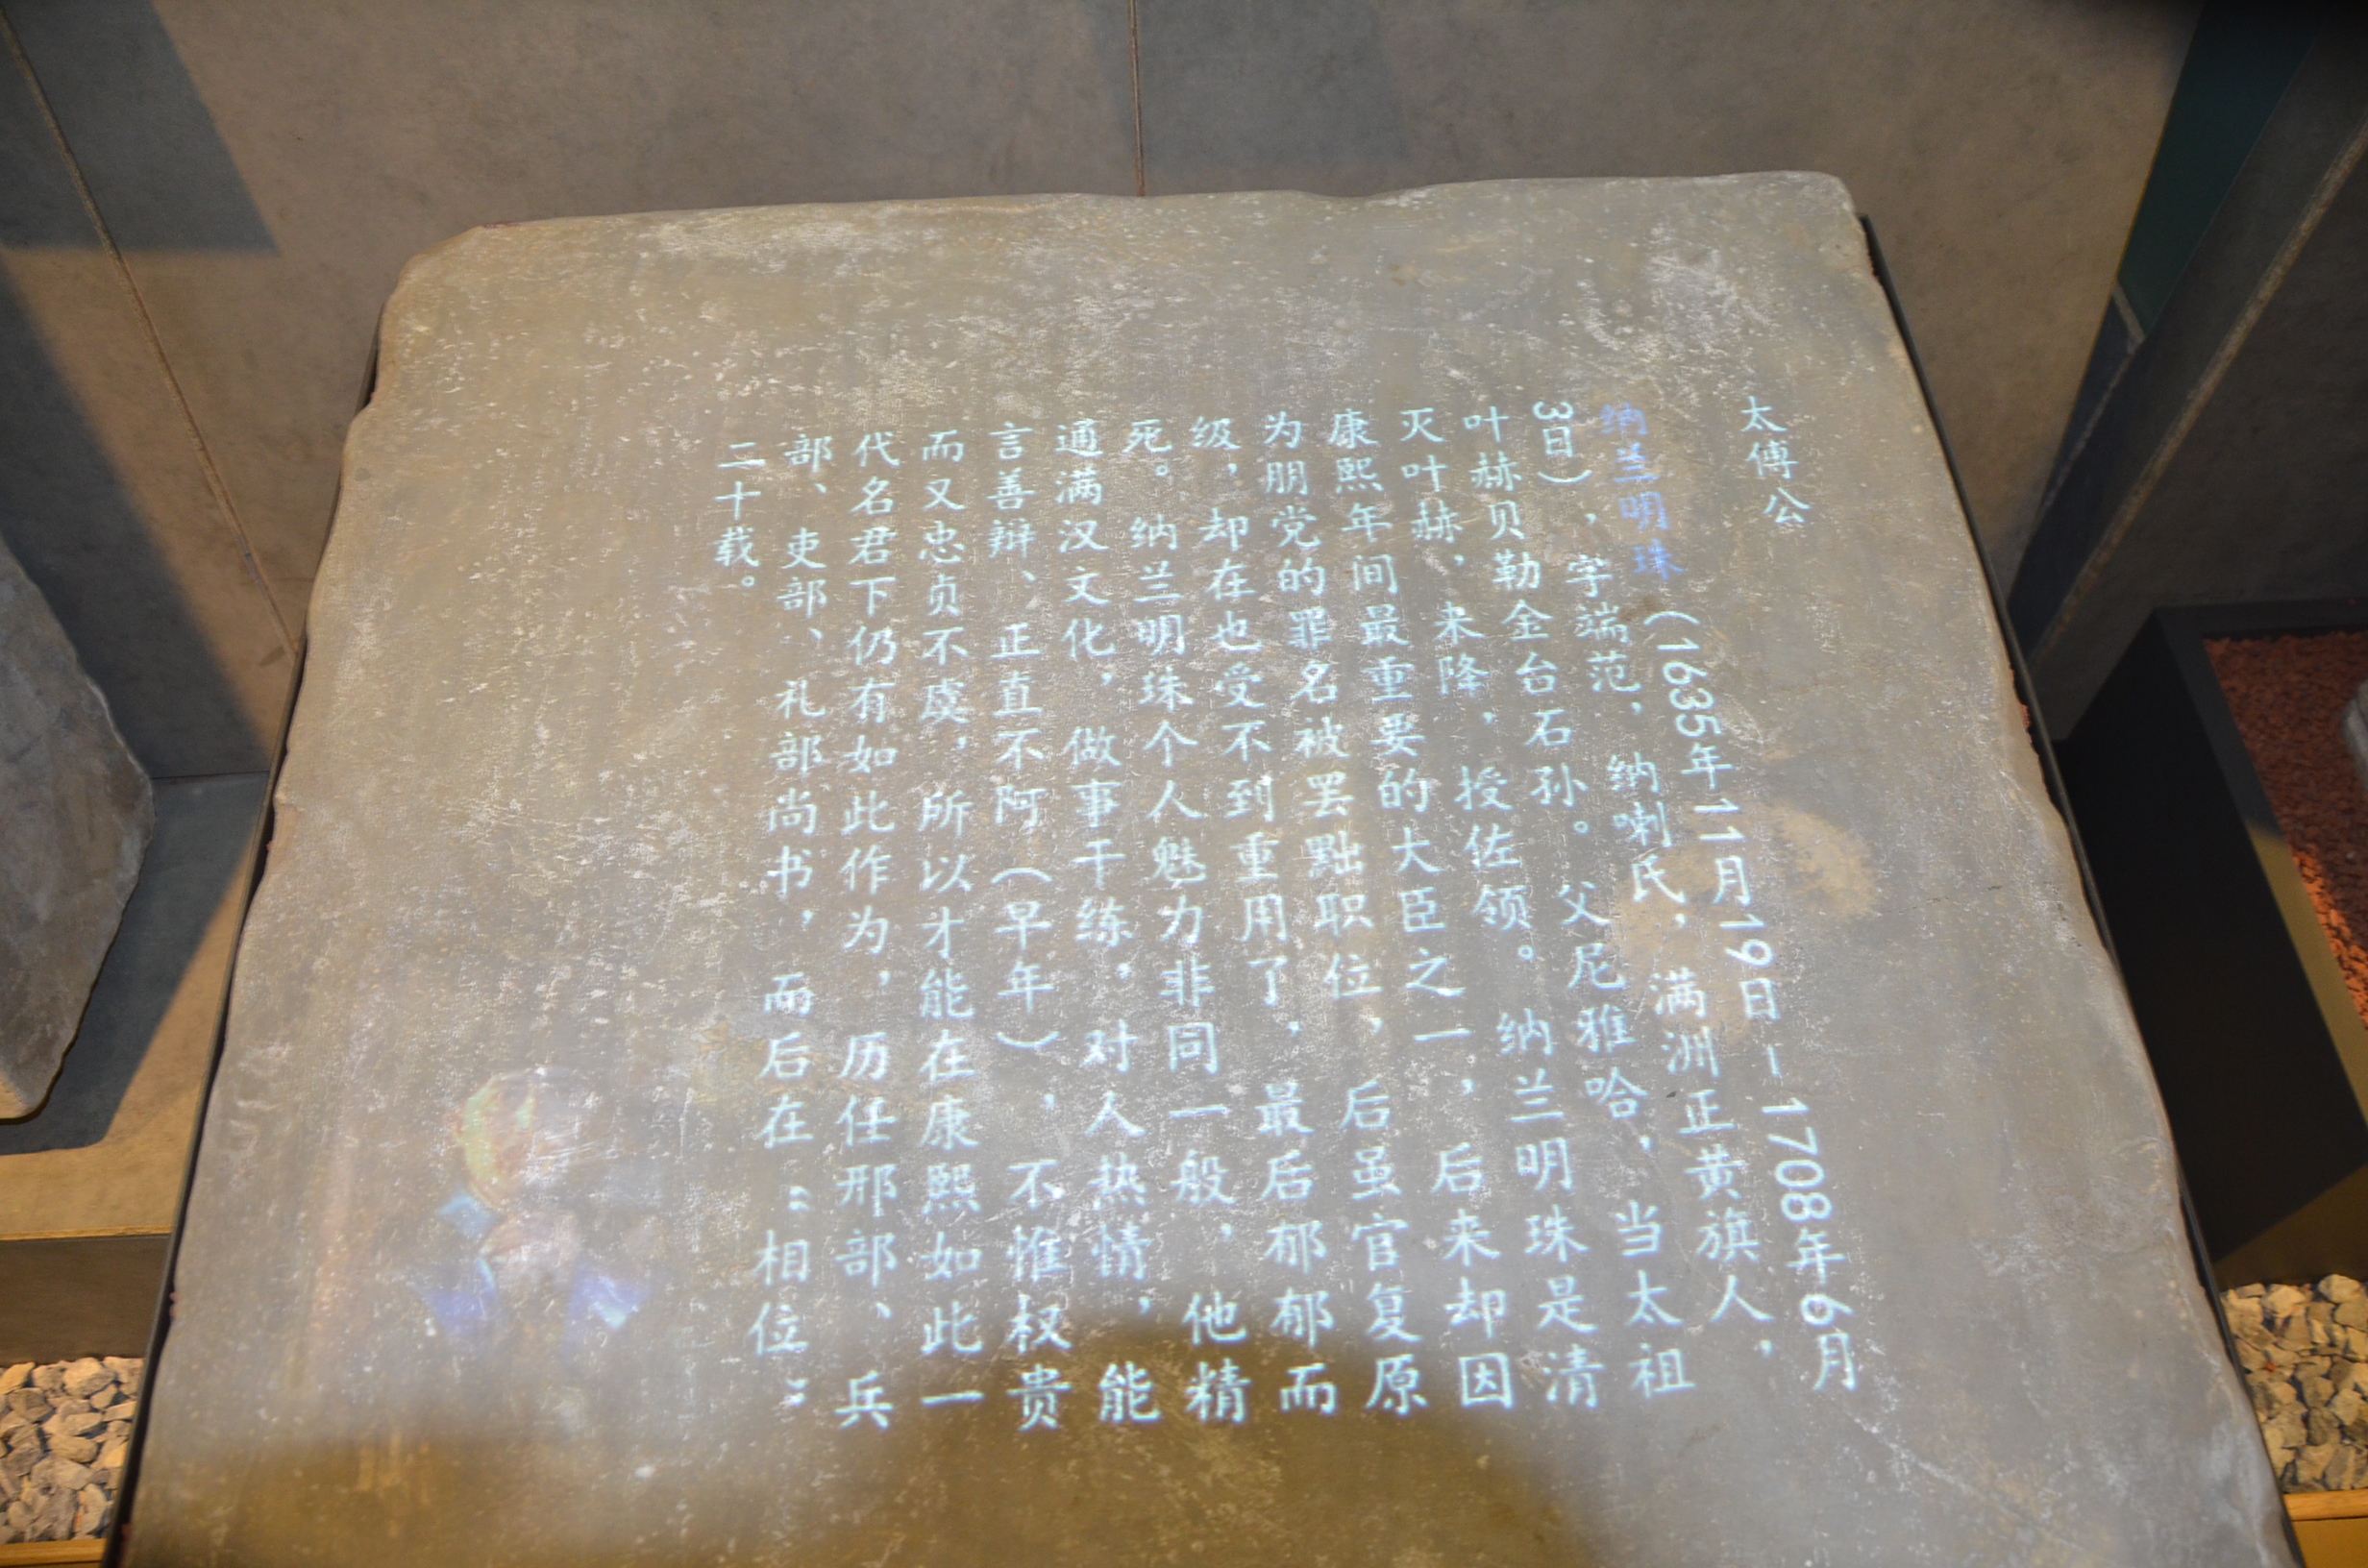 太傅公
纳兰明珠（1635年11月19日－1708年6月
3日），字端范，纳喇氏，满洲正黄旗人，
叶赫贝勒金台石孙。父尼雅哈，当太祖
灭叶赫，来降，授佐领。纳兰明珠是清
康熙年间最重要的大臣之一，后来却因
为朋党的罪名被罢黜职位，后虽官复原
级，却在也受不到重用了，最后郁郁而
死。纳兰明珠个人魅力非同一般，他精
通满汉文化，做事干练，对人热情，能
言善辩、正直不阿（早年），不惟权贵
而又忠贞不虞，所以才能在康熙如此一
代名君下仍有如此作为，历任邢部、兵
部、吏部、礼部尚书，而后在“相位”
二十载。